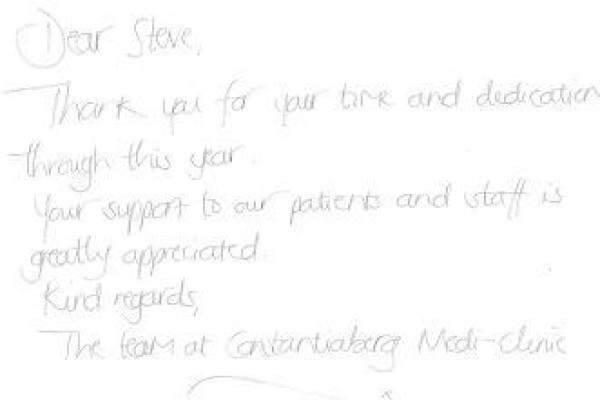 Dear Steve,
Thank you for your time and dedication
through this year.
Your support to our patients and staff is
greatly appreciated.
Kind regards,
The team at Constantiaberg Medi-Clinic